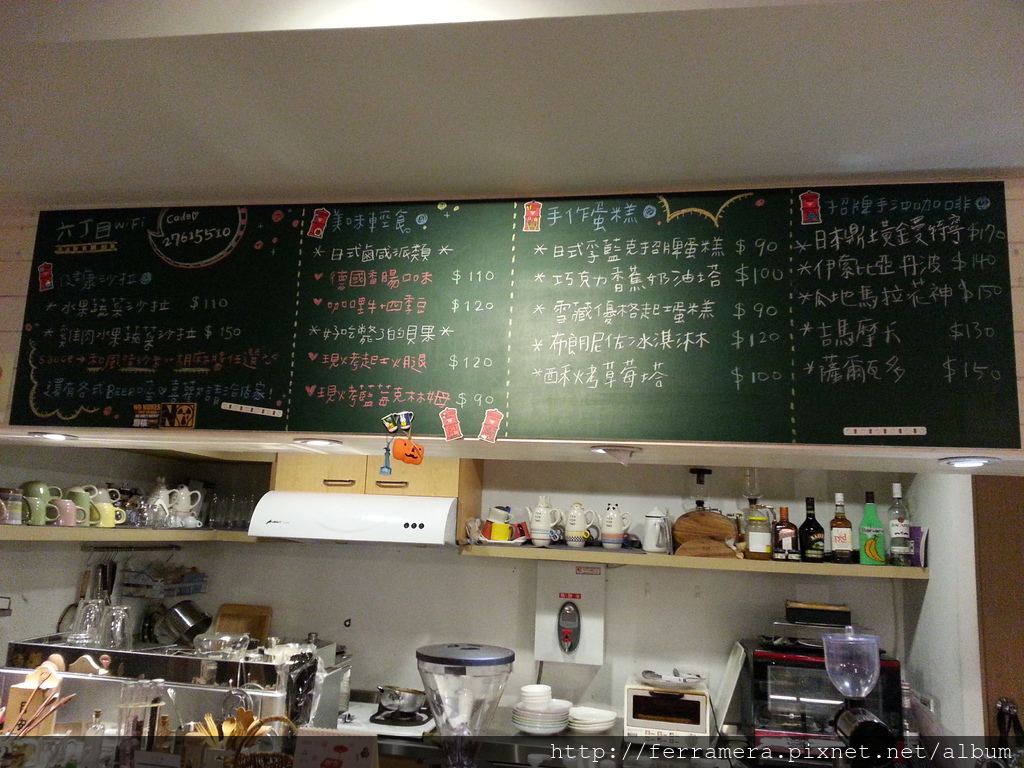 六丁目 WiFi
Code
27615510
健康沙拉
* 水果蔬菜沙拉 $110
* 雞肉水果蔬菜沙拉 $150
sauce → 和風 任選
還有各式BEER 請洽店家!
NO NUKES
美味輕食
* 日式鹹派類 *
♥ 德國香腸口味 $110
♥ 咖哩牛+四季豆 $120
* 好吃斃了的貝果 *
♥ 現烤起士火腿 $120
♥ 現烤藍莓克林姆 $90
手作蛋糕
* 日式李藍克招牌蛋糕 $90
* 巧克力香蕉奶油塔 $100
* 雪藏優格起士蛋糕 $90
* 布朗尼佐冰淇淋 $120
* 酥烤草莓塔 $100
招牌手沖咖啡
* 日本鼎上黃金曼特寧 $170
* 伊索比亞丹波 $140
* 瓜地馬拉花神 $150
* 吉馬摩夫 $130
* 薩爾瓦多 $150
http://ferramera.pixnet.net/album